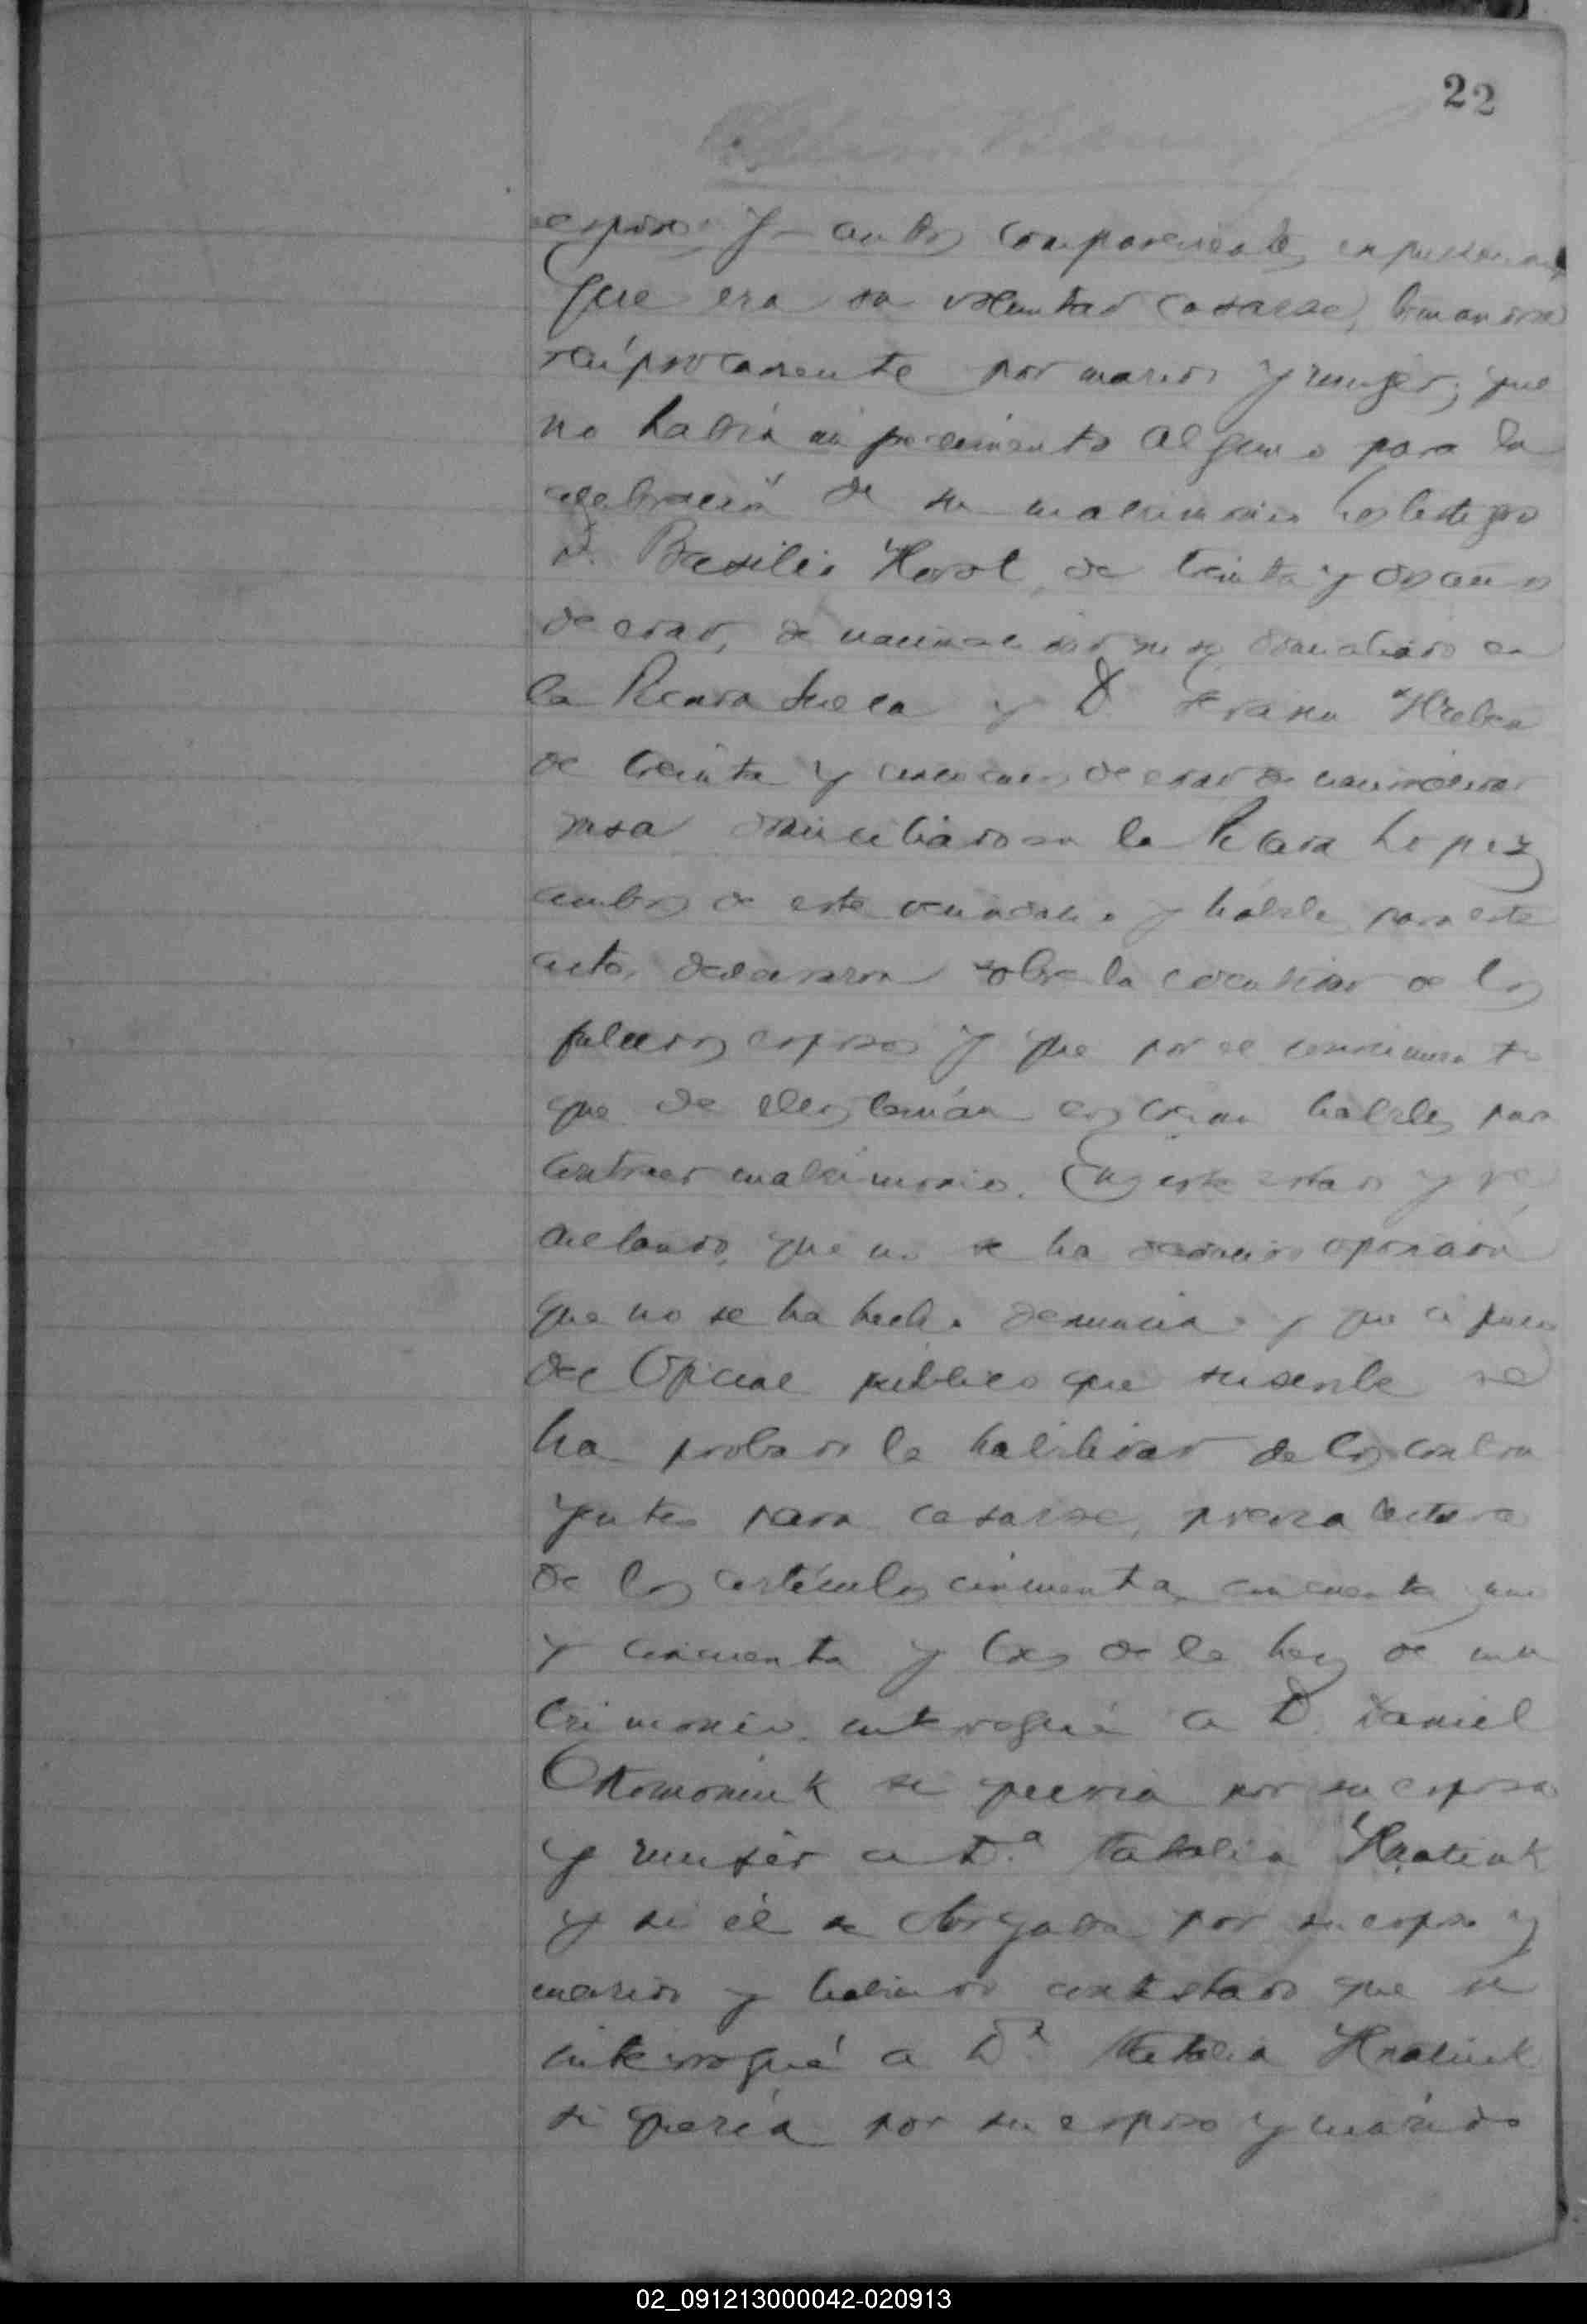 22
esposo. Y ambos comparecientes expusieron
que era su voluntad casarse, tomandose
recíprocamente por marido y mujer; que
no había impedimento alguno para la
celebración de su matrimonio Los testigos
D. Basilio Horol, de treinta y dos años
de edad, de nacionalidad ruso domiciliado en
la Picada Sueca y D. Hreben
de treinta y cinco años de edad de nacionalidad
rusa domiciliado en la Picada Lopez
ambos de este vecindario y hábiles para este
acto, declararon sobre la identidad de los
futuros esposos y que por el conocimiento
que de ellos tenían los creían hábiles para
contraer matrimonio. En este estado y re
sultando, que no se ha deducido oposición
que no se ha hecho denuncia y que a juicio
del Oficial público que suscribe se
ha probado la habilidad de los contra
yentes para casarse, previa lectura
de los artículos cincuenta, cincuenta y uno
y cincuenta y tres de la Ley de ma
trimonio, interrogué a D. Daniel
Ostomoniuk si quería por su esposa
y mujer a D.ª Natalia Hnatiuk
y si él se otorgaba por su esposo y
marido y habiendo contestado que si
interrogué a D.ª Natalia Hnatiuk
si quería por su esposo y marido
02_091213000042-020913